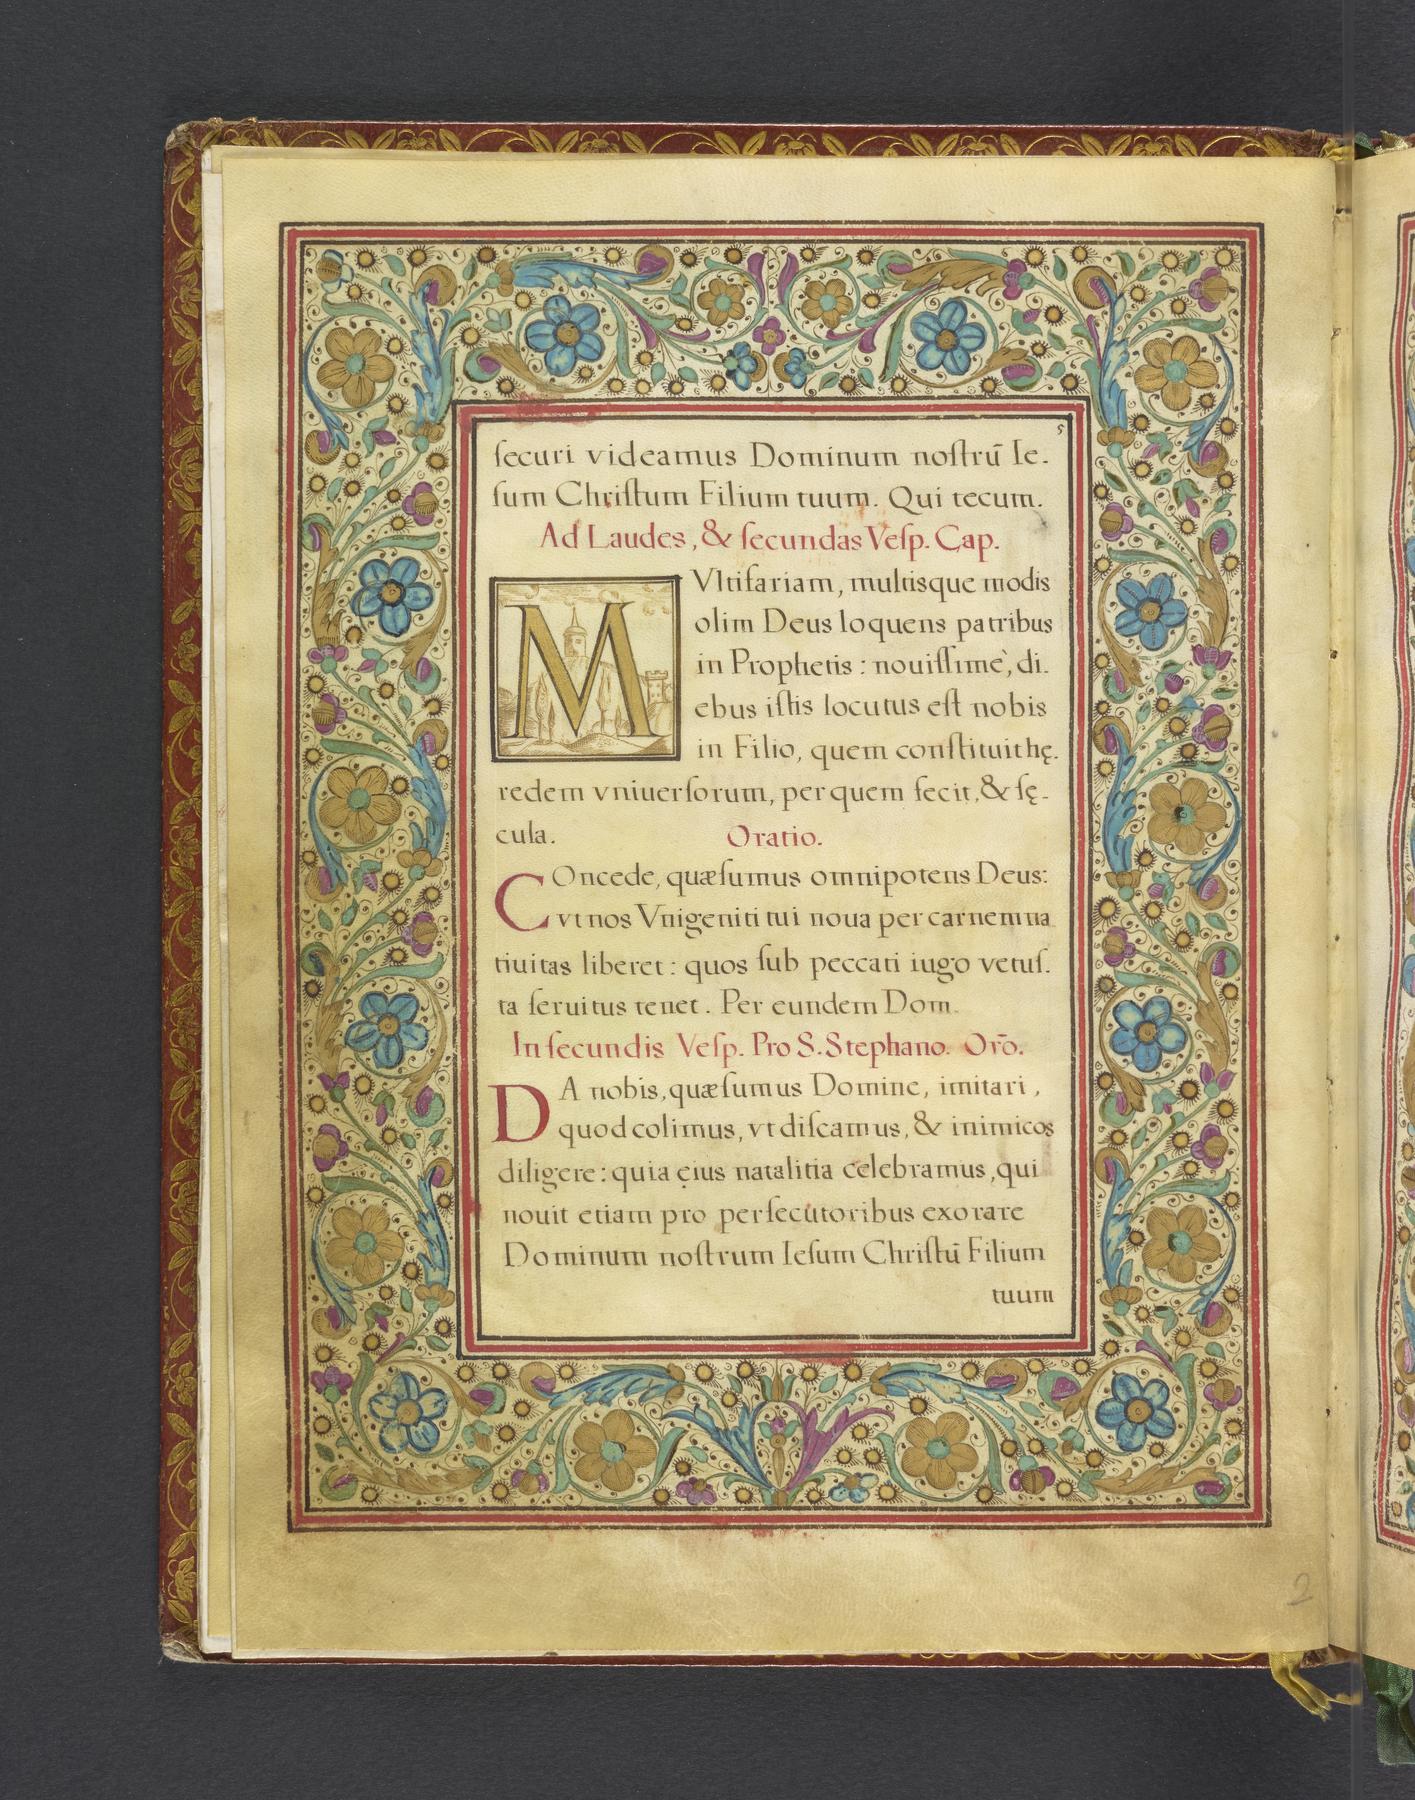 5
ſecuri videamus Dominum noſtrū Ie-
ſum Chriſtum Filium tuum. Qui tecum.
Ad Laudes, & ſecundas Veſp. Cap.
MVltifariam, multisque modis
olim Deus loquens patribus
in Prophetis: nouiſſimè, di-
ebus iſtis locutus eſt nobis
in Filio, quem conſtituit hę-
redem vniuerſorum, per quem fecit, & ſę-
cula. Oratio.
COncede, quæſumus omnipotens Deus:
vt nos Vnigeniti tui noua per carnem na
tiuitas liberet: quos ſub peccati iugo vetuſ-
ta ſeruitus tenet. Per eundem Dom.
In ſecundis Veſp. Pro S. Stephano. Orõ.
DA nobis, quæſumus Domine, imitari,
quod colimus, vt diſcamus, & inimicos
diligere: quia eius natalitia celebramus, qui
nouit etiam pro perſecutoribus exorare
Dominum noſtrum Ieſum Chriſtū Filium
tuum
2